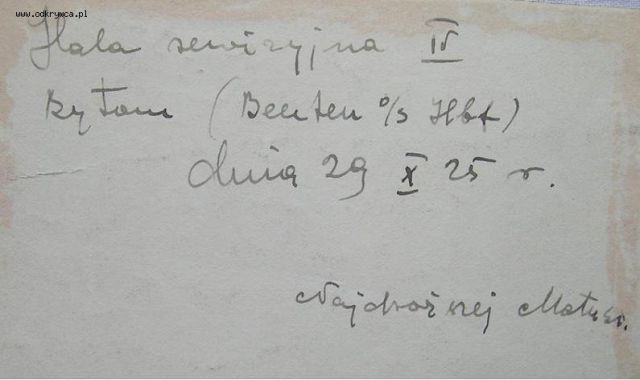 www.odkrywca.pl
Hala rewizyjna IV
Bytom (Beuten o/s Hbf)
dnia 29 X 25 r.
Najdroższej